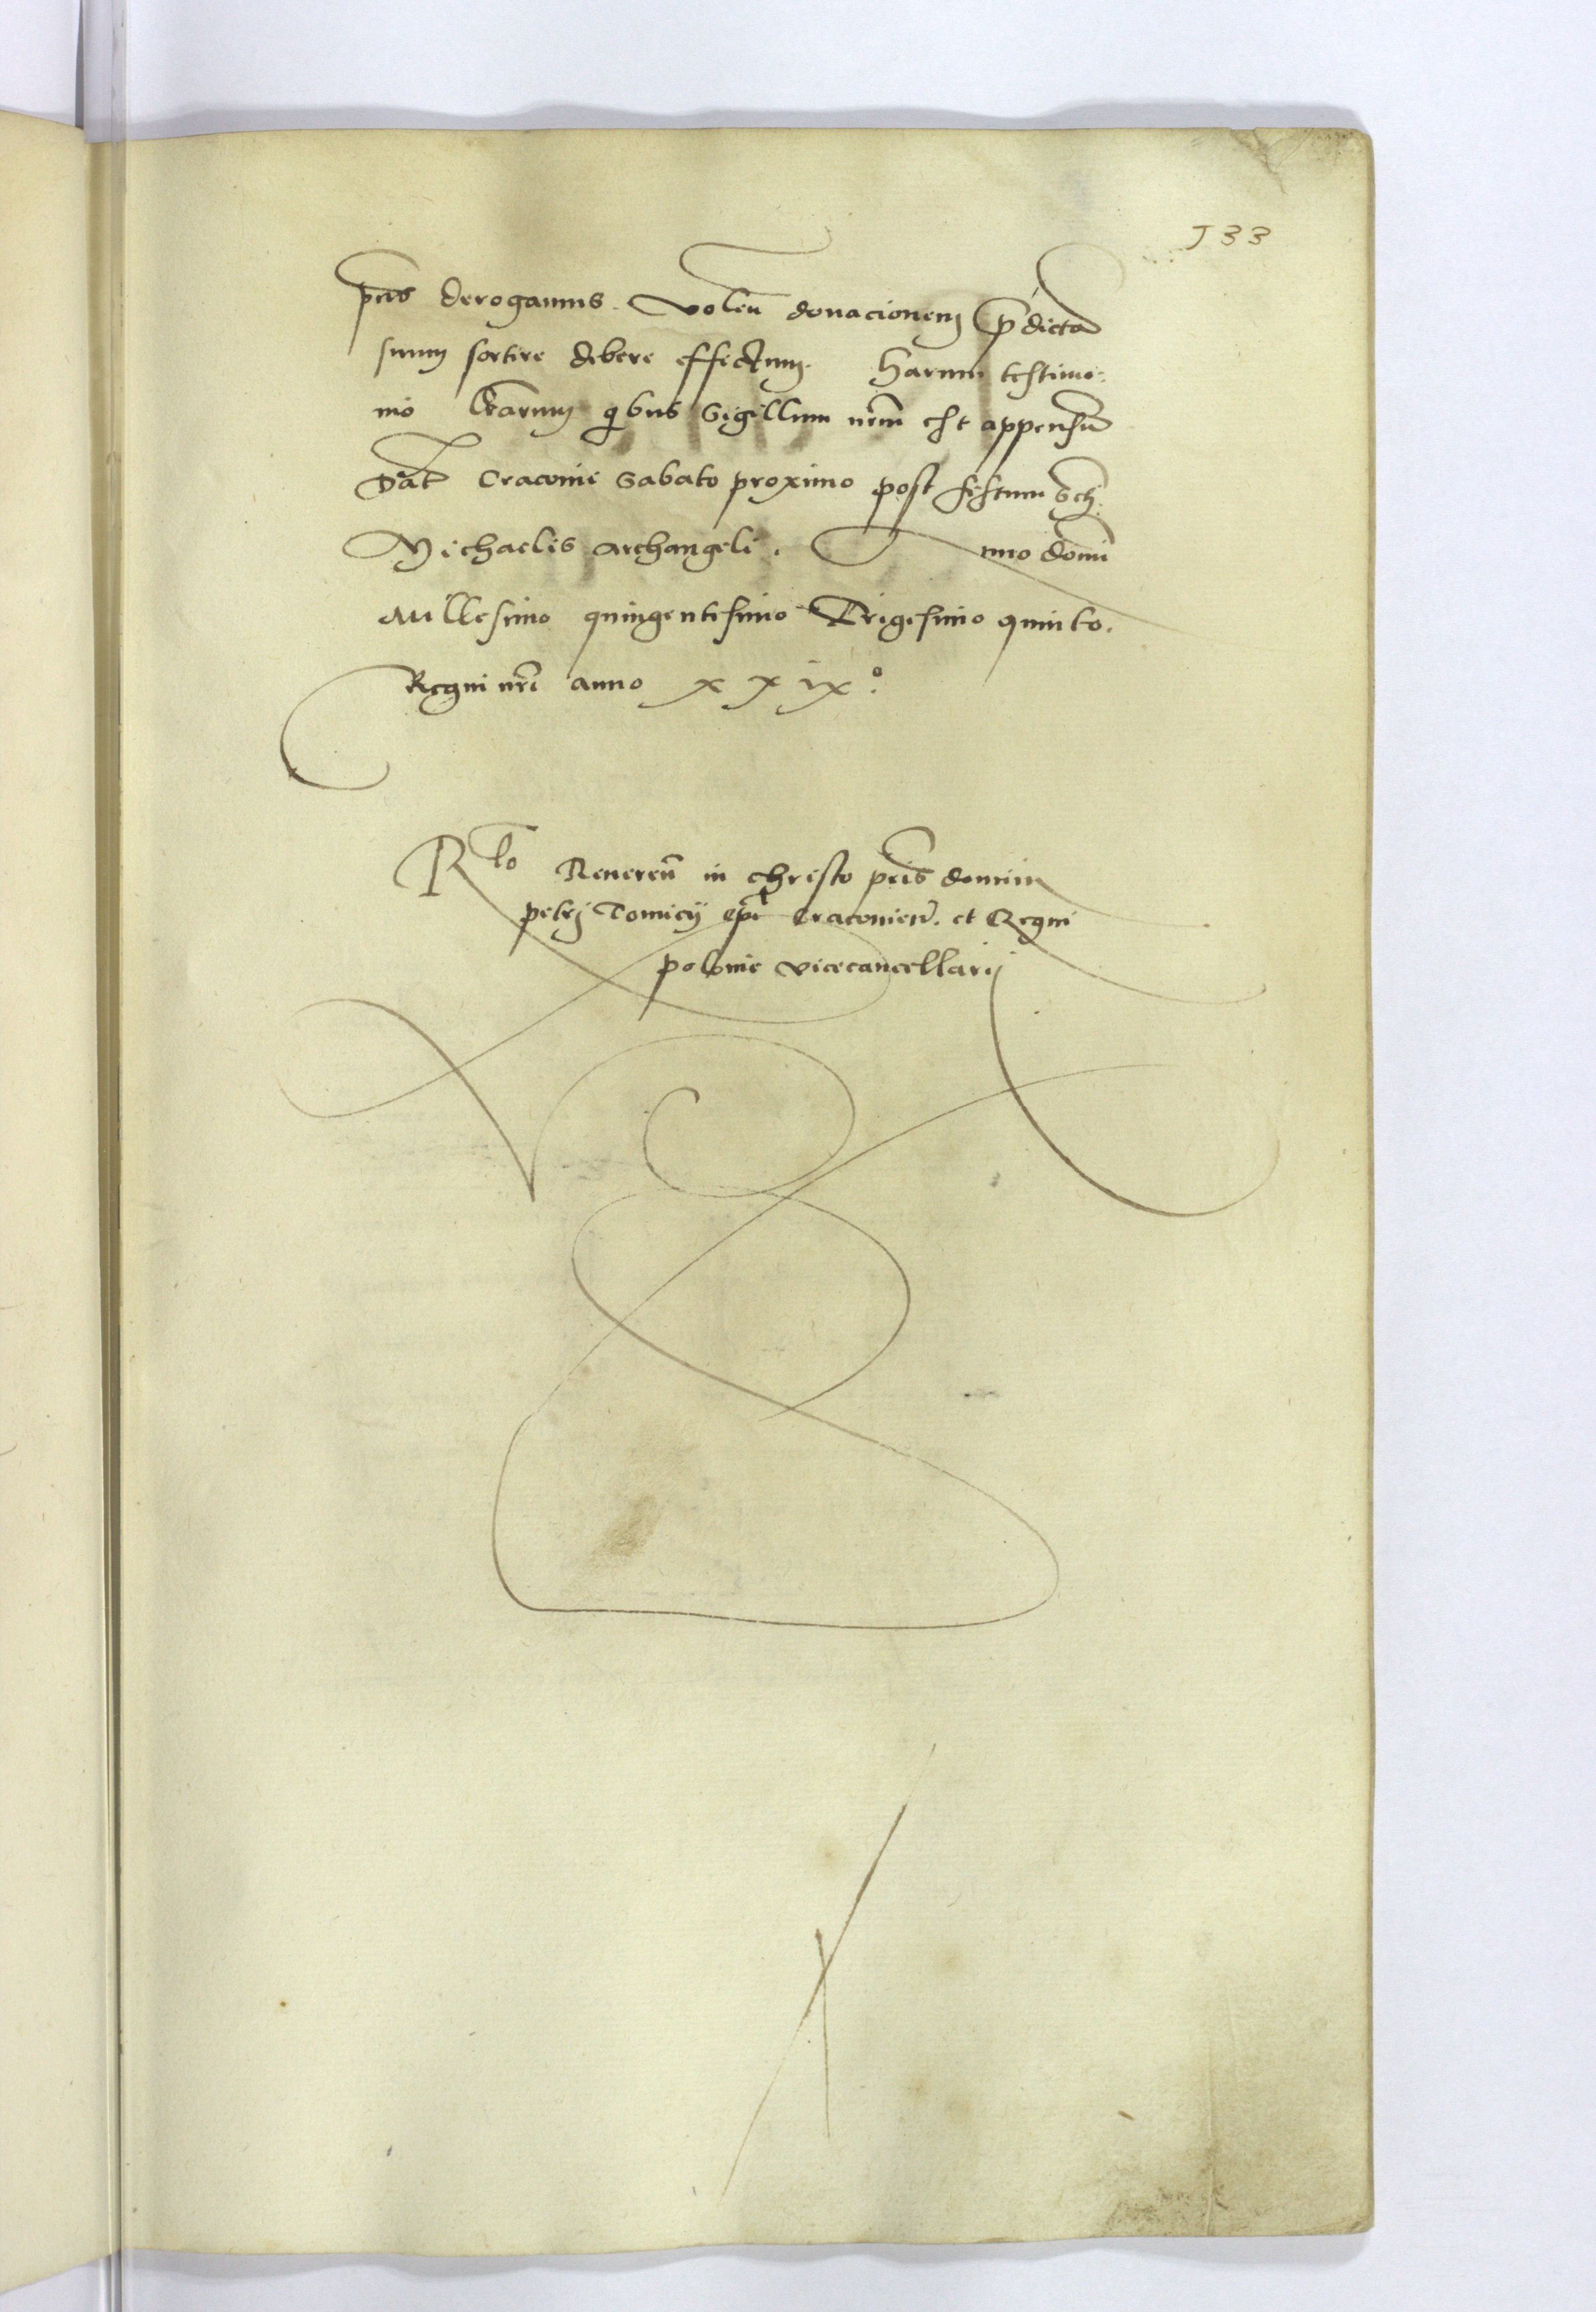 133
pñtis derogamus. Voleñ donacionem p̄dictā
suum sortire debere effectum. Harum testimo:
nio lr̄arum qibus Sigillum nr̄m est appensū
Dat̄ Cracovie Sabato proximo post festum Scī
Michaelis Archangeli. Anno domī
Millesimo quingentesimo Trigesimo quinto.
Regni nr̄i anno xxix°.
Rlo Reverēn in christo pr̄is domini
petri Tomicij epī Cracovieñ. et Regni
polonie vicecancellarij